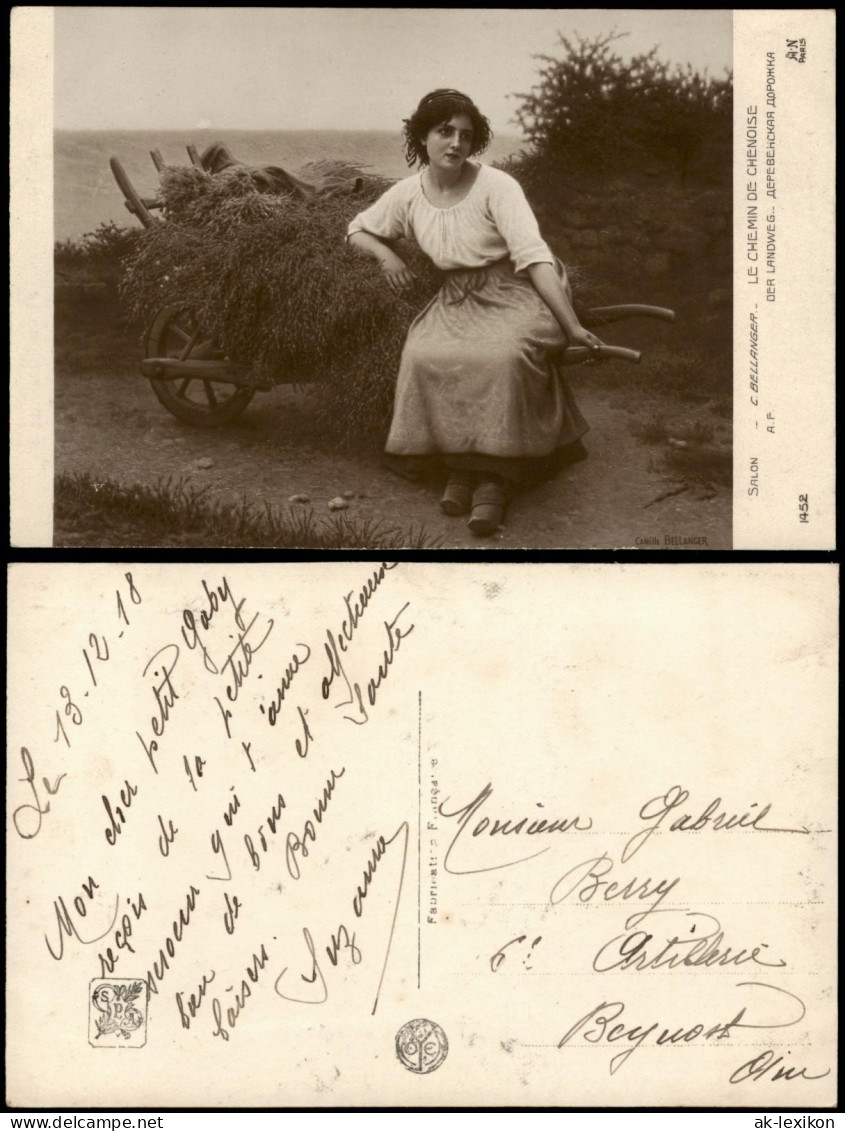 SALON - C. BELLANGER. - LE CHEMIN DE CHENOISE
A. F. DER LANDWEG. - ДЕРЕВЕНСКАЯ ДОРОЖКА
1452
A·N
PARIS
CAMILLE BELLANGER
Le 13-12-18
Mon cher petit Gaby
reçois de la petite
qui t'aime
de bons et affectueux
baisers. Bonne Santé
Suzanne
SPA
Fabrication Française
Monsieur Gabriel
Berry
6e Artillerie
Beynost
Ain
ak-lexikon